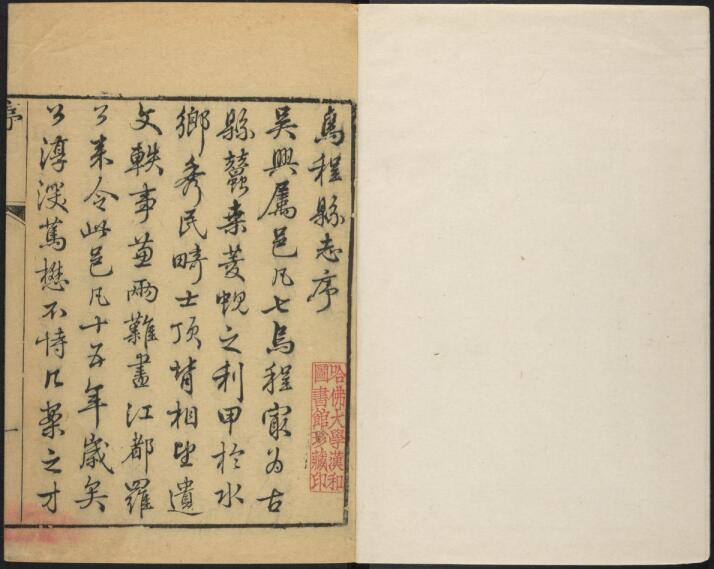 烏程縣志序
吳興屬邑凡七烏程寂為古
縣蠶桒菱蜆之利甲於水
鄉秀民畸士頂背相望遺
文軼事蓋兩難盡江都羅
公来令此邑凡十五年歲矣
公淳深篤懋不恃之才
序
一
哈佛大學漢和
圖書館珍藏印